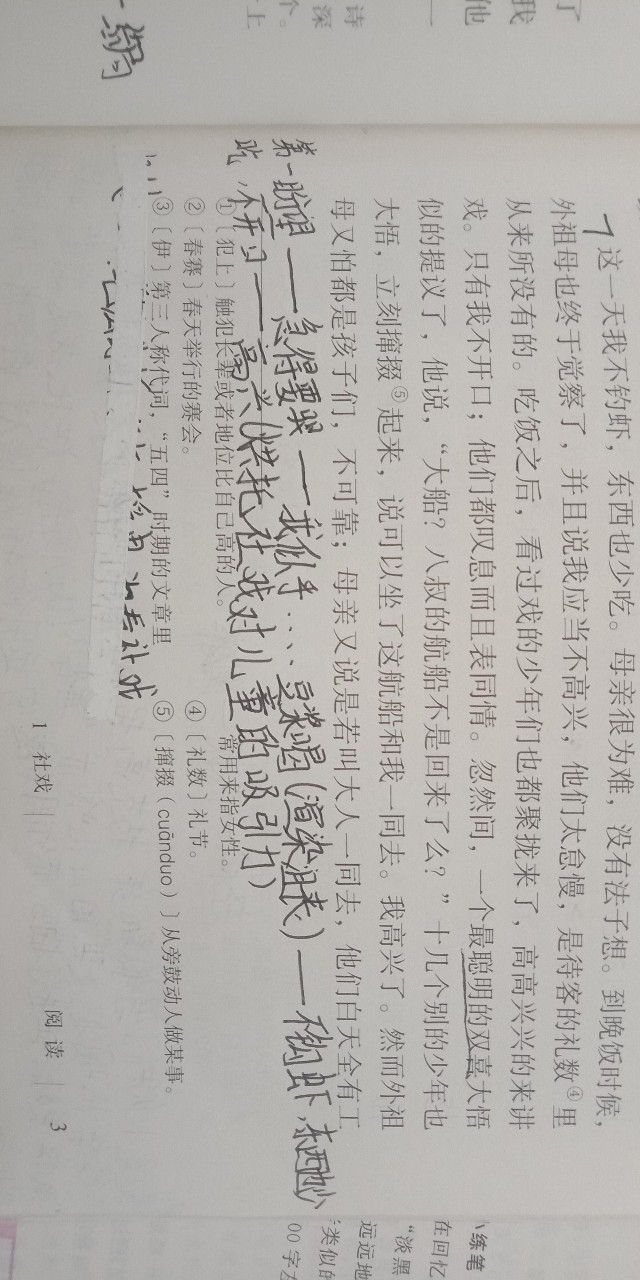 7
这一天我不钓虾，东西也少吃。母亲很为难，没有法子想。到晚饭时候，
外祖母也终于觉察了，并且说我应当不高兴，他们太怠慢，是待客的礼数④里
从来所没有的。吃饭之后，看过戏的少年们也都聚拢来了，高高兴兴的来讲
戏。只有我不开口；他们都叹息而且表同情。忽然间，一个最聪明的双喜大悟
似的提议了，他说，“大船？八叔的航船不是回来了么？”十几个别的少年也
大悟，立刻撺掇⑤起来，说可以坐了这航船和我一同去。我高兴了。然而外祖
母又怕都是孩子们，不可靠；母亲又说是若叫大人一同去，他们白天全有工
第一盼望——急得要哭——我似乎……豆浆喝(渲染沮丧)——不钓虾，东西也少
吃，不开口——高兴(烘托社戏对儿童的吸引力)
①〔犯上〕触犯长辈或者地位比自己高的人。
②〔春赛〕春天举行的赛会。
③〔伊〕第三人称代词，“五四”时期的文章里
常用来指女性。
④〔礼数〕礼节。
⑤〔撺掇（cuānduo）〕从旁鼓动人做某事。
1 社戏
阅读 3
了
我
他
诗
深
个。
上
小练笔
在回忆
“淡黑
远远地
类似的